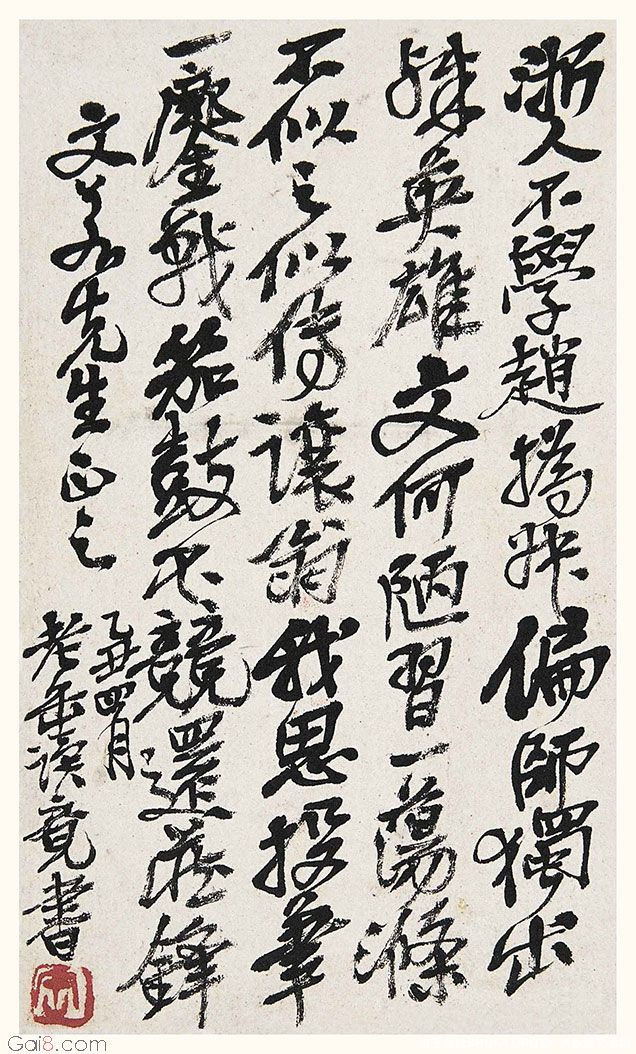 浙人不學趙撝叔偏師獨出
殊英雄文何陋習一蕩滌
不似之似傳讓翁我思投筆
一鏖戰笳鼓不競還藏鋒
文先生正之
乙丑四月
老缶讀竟書
Gai8.com